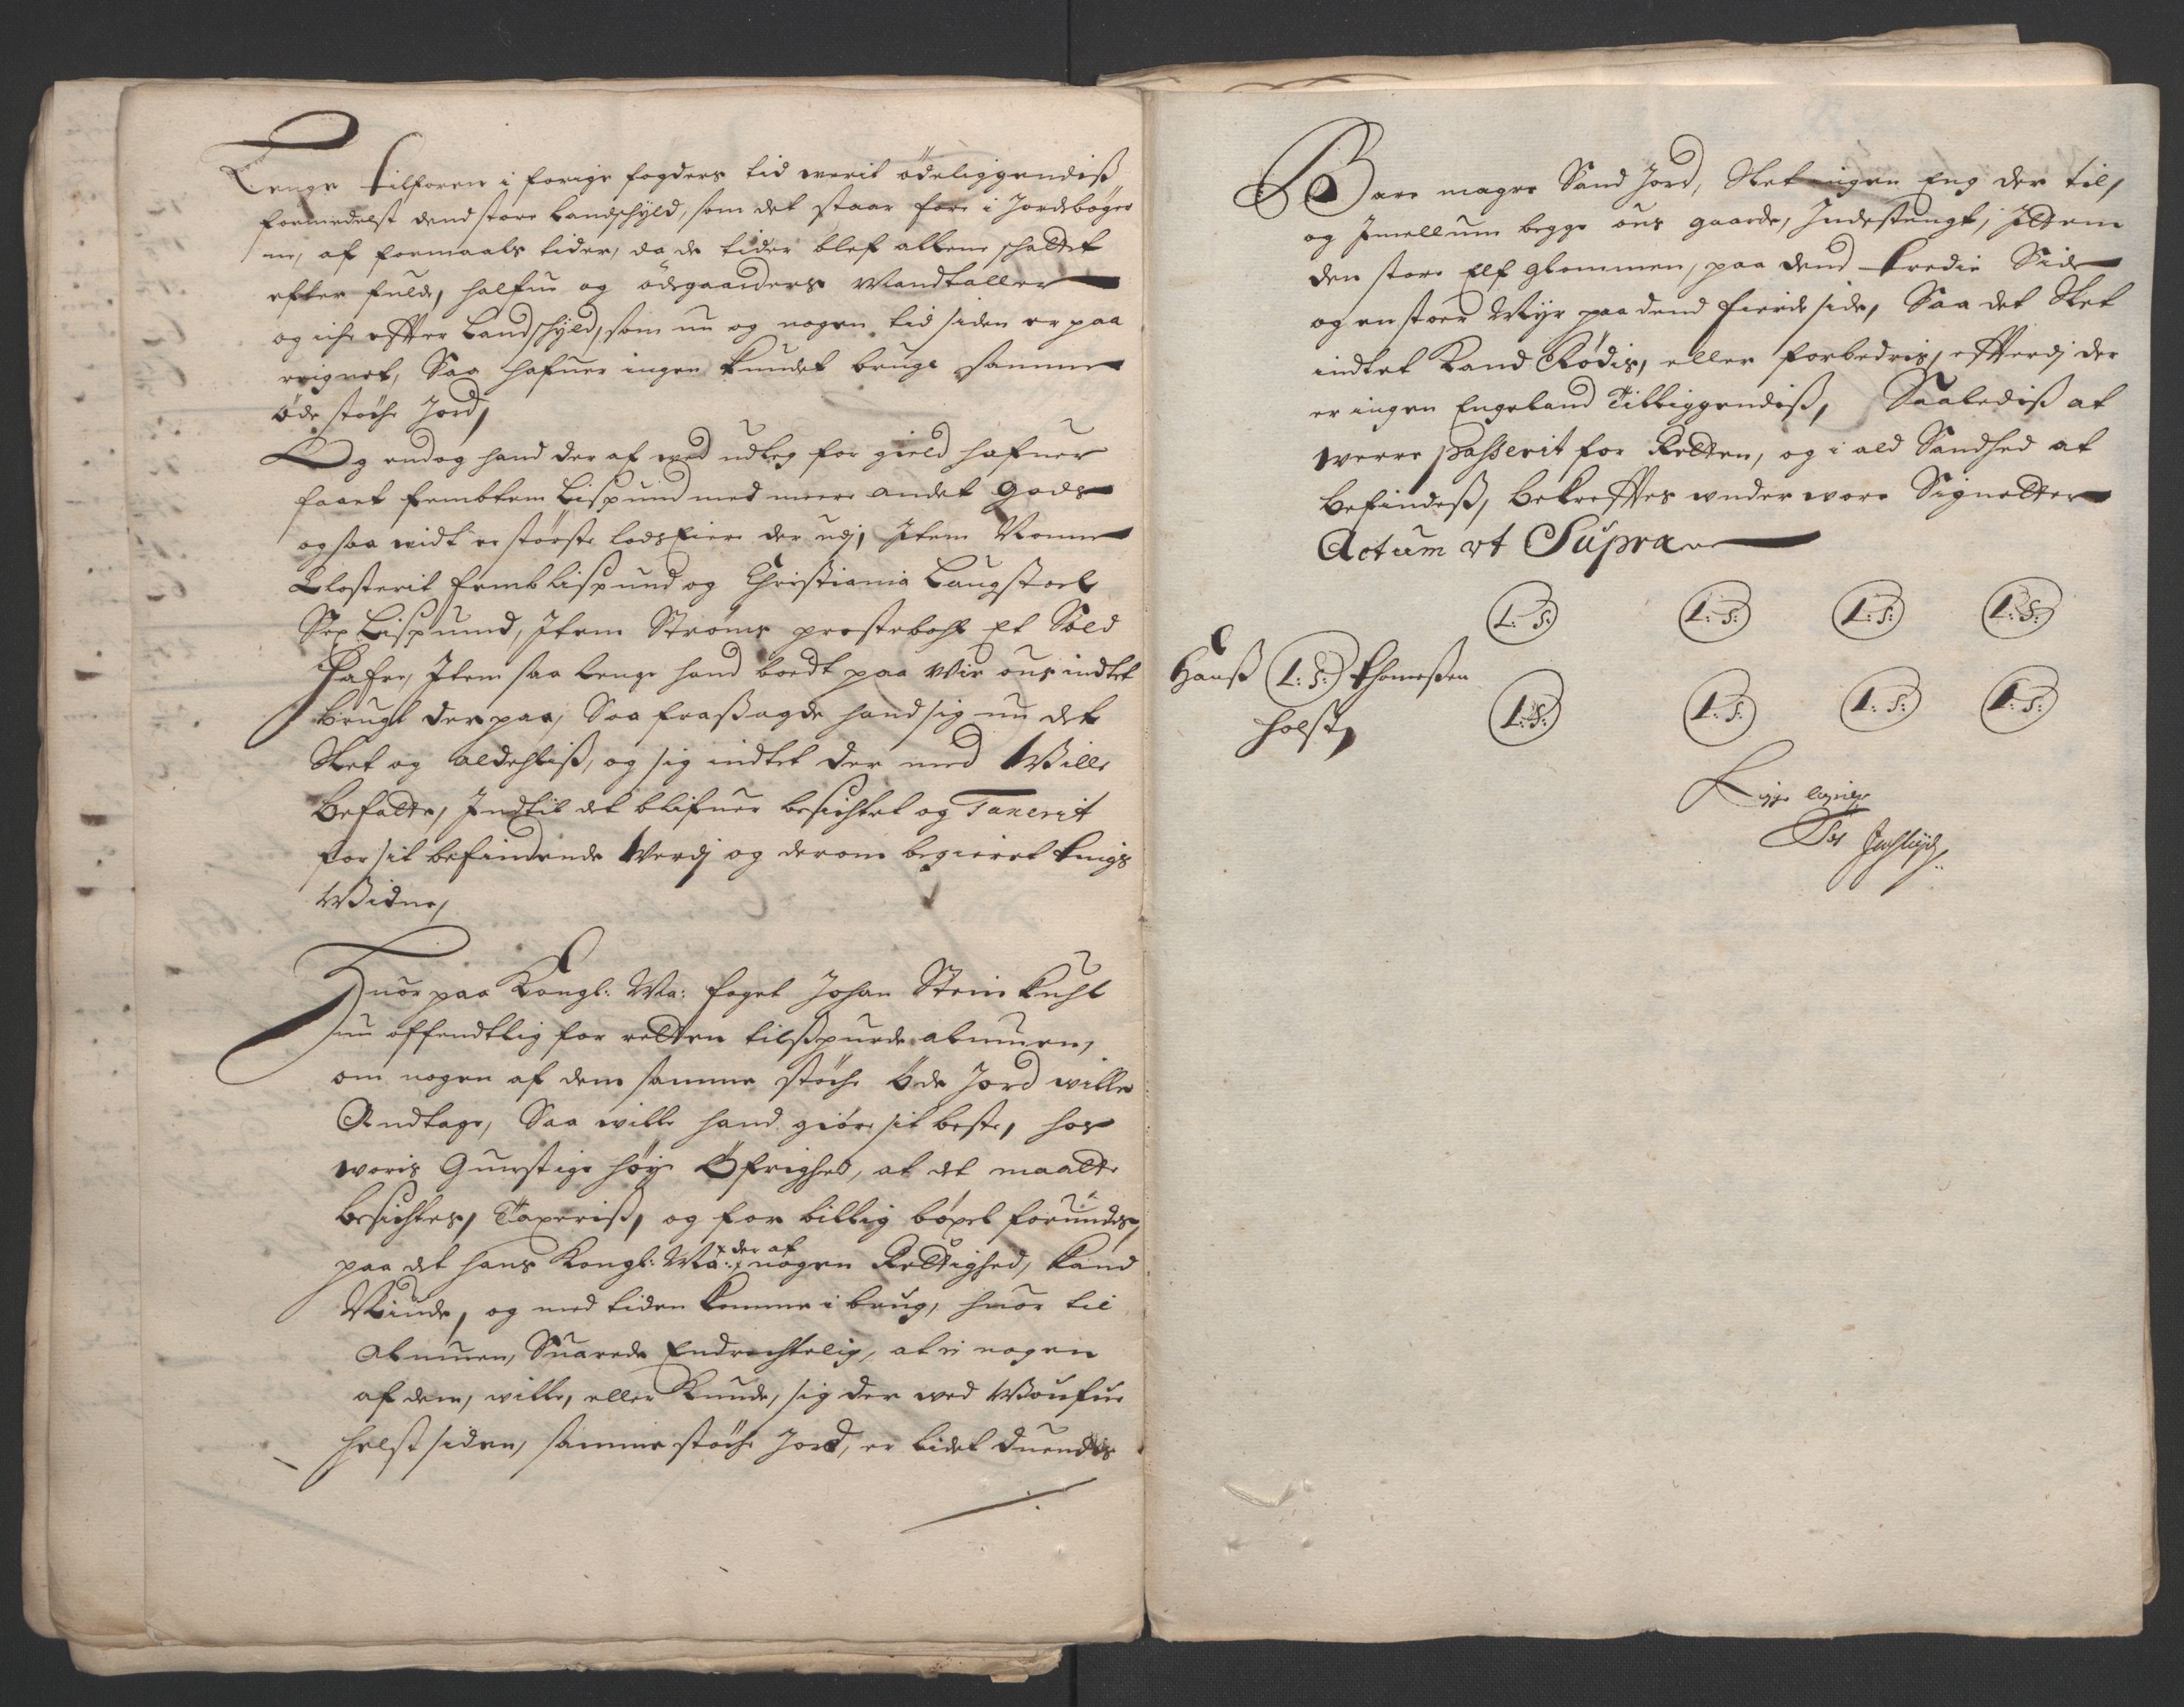 Lenge tilforen i forige fogders tid werit ödeliggendiß
formedelst dend store Landschyld, som det staar fore i Jordebøger
ne, af formaals tider, da de tider blef allene schattet
efter fulde, halfue og ödegaarders Mandtaller
og iche effter Landschyld, som nu og nogen tid siden er paa
reignet, Saa hafuer ingen kundet bruge samme
öde støche Jord,
Og endog hand der af wed udleg for gield hafuer
faaet fembten Lispund med meere andet gods
og saa widt er störste lodseiere der udj, Item Nonne
Closterit femb Lispund og Christiania Laugstoel
Sex Lispund, Item Ströms prestebohl Et Sold
Hafre, Item saa lenge hand boedt paa wir ous indtet
brugt der paa, Saa frasagde hand sig nu det
Slet og aldehliß, og sig indtet der med wille
befatte, Indtil det blifuer besichtet og Taxerit
for sit befindende Werdj og derom begieret tings
Widne,
Huor paa Kongl: Ma: foget Johan Steinkuhl
nu offendtlig for retten tilspurde almuen,
om nogen af dem samme støche Öde Jord wille
Andtage, Saa wille hand giöre sit beste, hos
woris Gunstige høye Öfrighed, at det maatte
besichtes, Taxeriß, og for billig böxel forundes,
paa det hans Kongl: Ma: der af nogen Rettighed, kand
Niude, og med tiden komme i brug, huor til
Almuen, Suarede Endrechtelig, at ei nogen
af dem, wille, eller Kunde, sig der wed
helst siden, samme støche Jord, er lidet duendis
Bare mager Sand Jord, Slet ingen Eng der til,
og Imellum begge ous gaarde, Indestengt, Jtem
den store Elf Glommen, paa dend tredie Side
og en stoer Myr paa dend fierde side, Saa det Slet
indtet Kand Rödis, eller forbedris, effterdj der
er ingen Engeland Tilliggendiß, Saalediß at
werre passerit for Retten, og i ald Sandhed at
befindeß, bekreffter wnder wore Signetter
Actum vt Supra
L: S: L: S: L: S: L: S:
Hanß L: S: Thomeßen
Holst,
L: S: L: S: L: S: L: S: